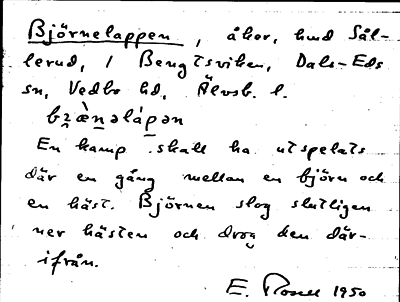 Björnelappen, åker, hmd Sål-
lerud, / Bengtsviken, Dals-Eds
sn, Vedbo hd, Älvsb. l.
En kamp skall ha utspelats
där en gång mellan en björn och
en häst. Björnen slog slutligen
ner hästen och drog den där-
ifrån.
E. 1950